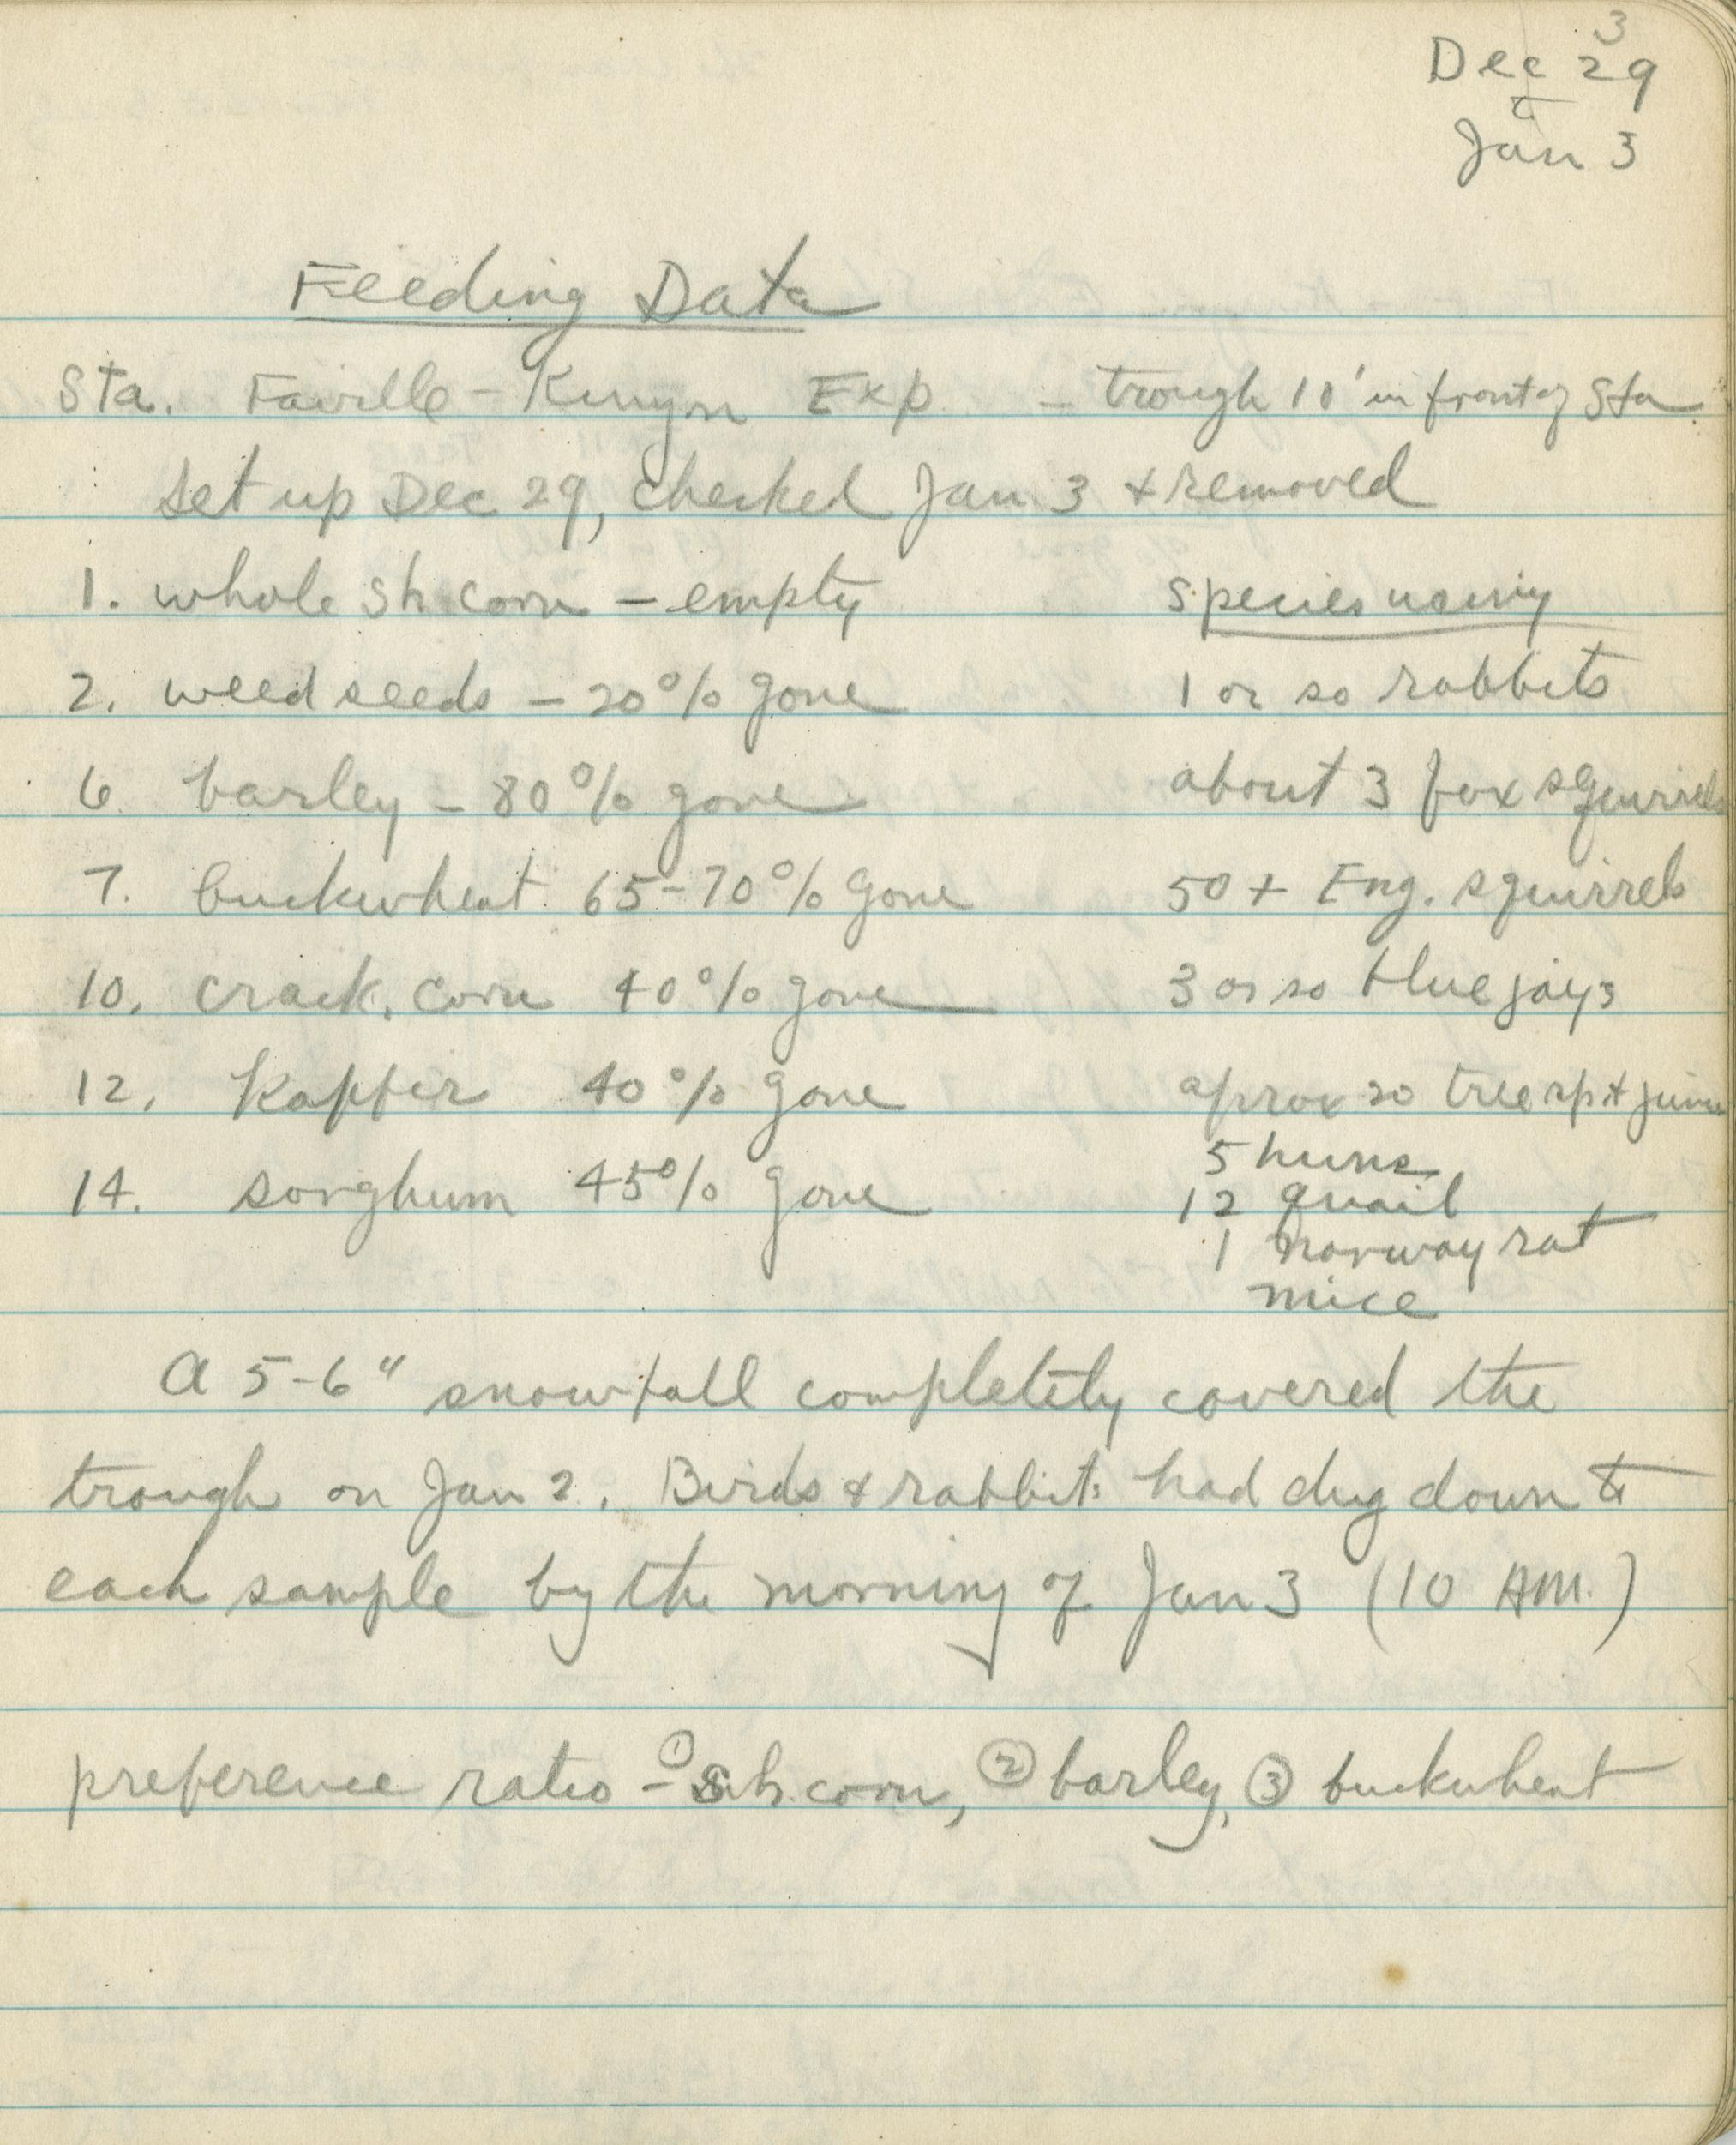 3
Dec 29
to
Jan 3
Feeding Data
Sta. Faville - Kenyon Exp - trough 10' in front of Sta
Set up Dec 29, checked Jan 3 + removed
1. whole sh. corn - empty species using
2. weed seeds - 20% gone 1 or so rabbits
6. barley - 80% gone about 3 fox squirrels
7. buckwheat 65-70% gone 50+ Eng. squirrels
10. crack. corn 40% gone 3 or so blue jays
12. Kaffir 40% gone aprox 20 tree sp +
5 huns
14. sorghum 45% gone 12 quail
1 norway rat
mice
A 5-6" snowfall completely covered the
trough on Jan 2. Birds & rabbits had dug down to
each sample by the morning of Jan 3 (10 AM.)
preference ratio - ① sh. corn, ② barley, ③ buckwheat